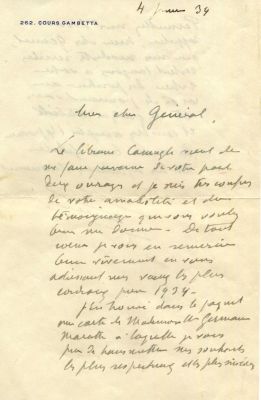 262. COURS GAMBETTA
4 janv 34
Mon cher Général,
Le libraire vient de
me faire parvenir de votre part
deux ouvrages et je suis très confus
de votre amabilité et du
témoignage que vous voulez
bien me donner. De tout
coeur je vous en remercie
bien vivement en vous
adressant mes voeux les plus
cordiaux pour 1934.
J'ai trouvé dans le paquet
une carte de Mademoiselle Germaine
à laquelle je vous
prie de transmettre mes souhaits
les plus respectueux et les plus sincères